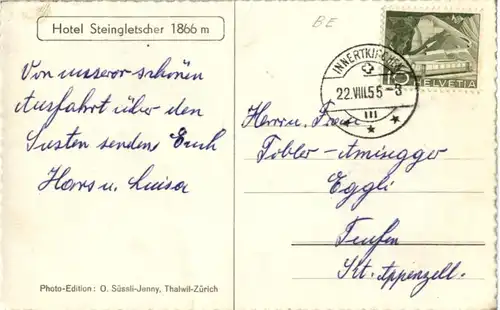 Hotel Steingletscher 1866 m
Von unserer schönen
Ausfahrt über den
Susten senden Euch
Hans u. Luisa
Photo-Edition: O. Süssli-Jenny, Thalwil-Zürich
BE
INNERTKIRCHEN
22.VIII.55-3
10
HELVETIA
Herrn u. Frau
Tobler-
Eggli
Teufen
Kt. Appenzell.